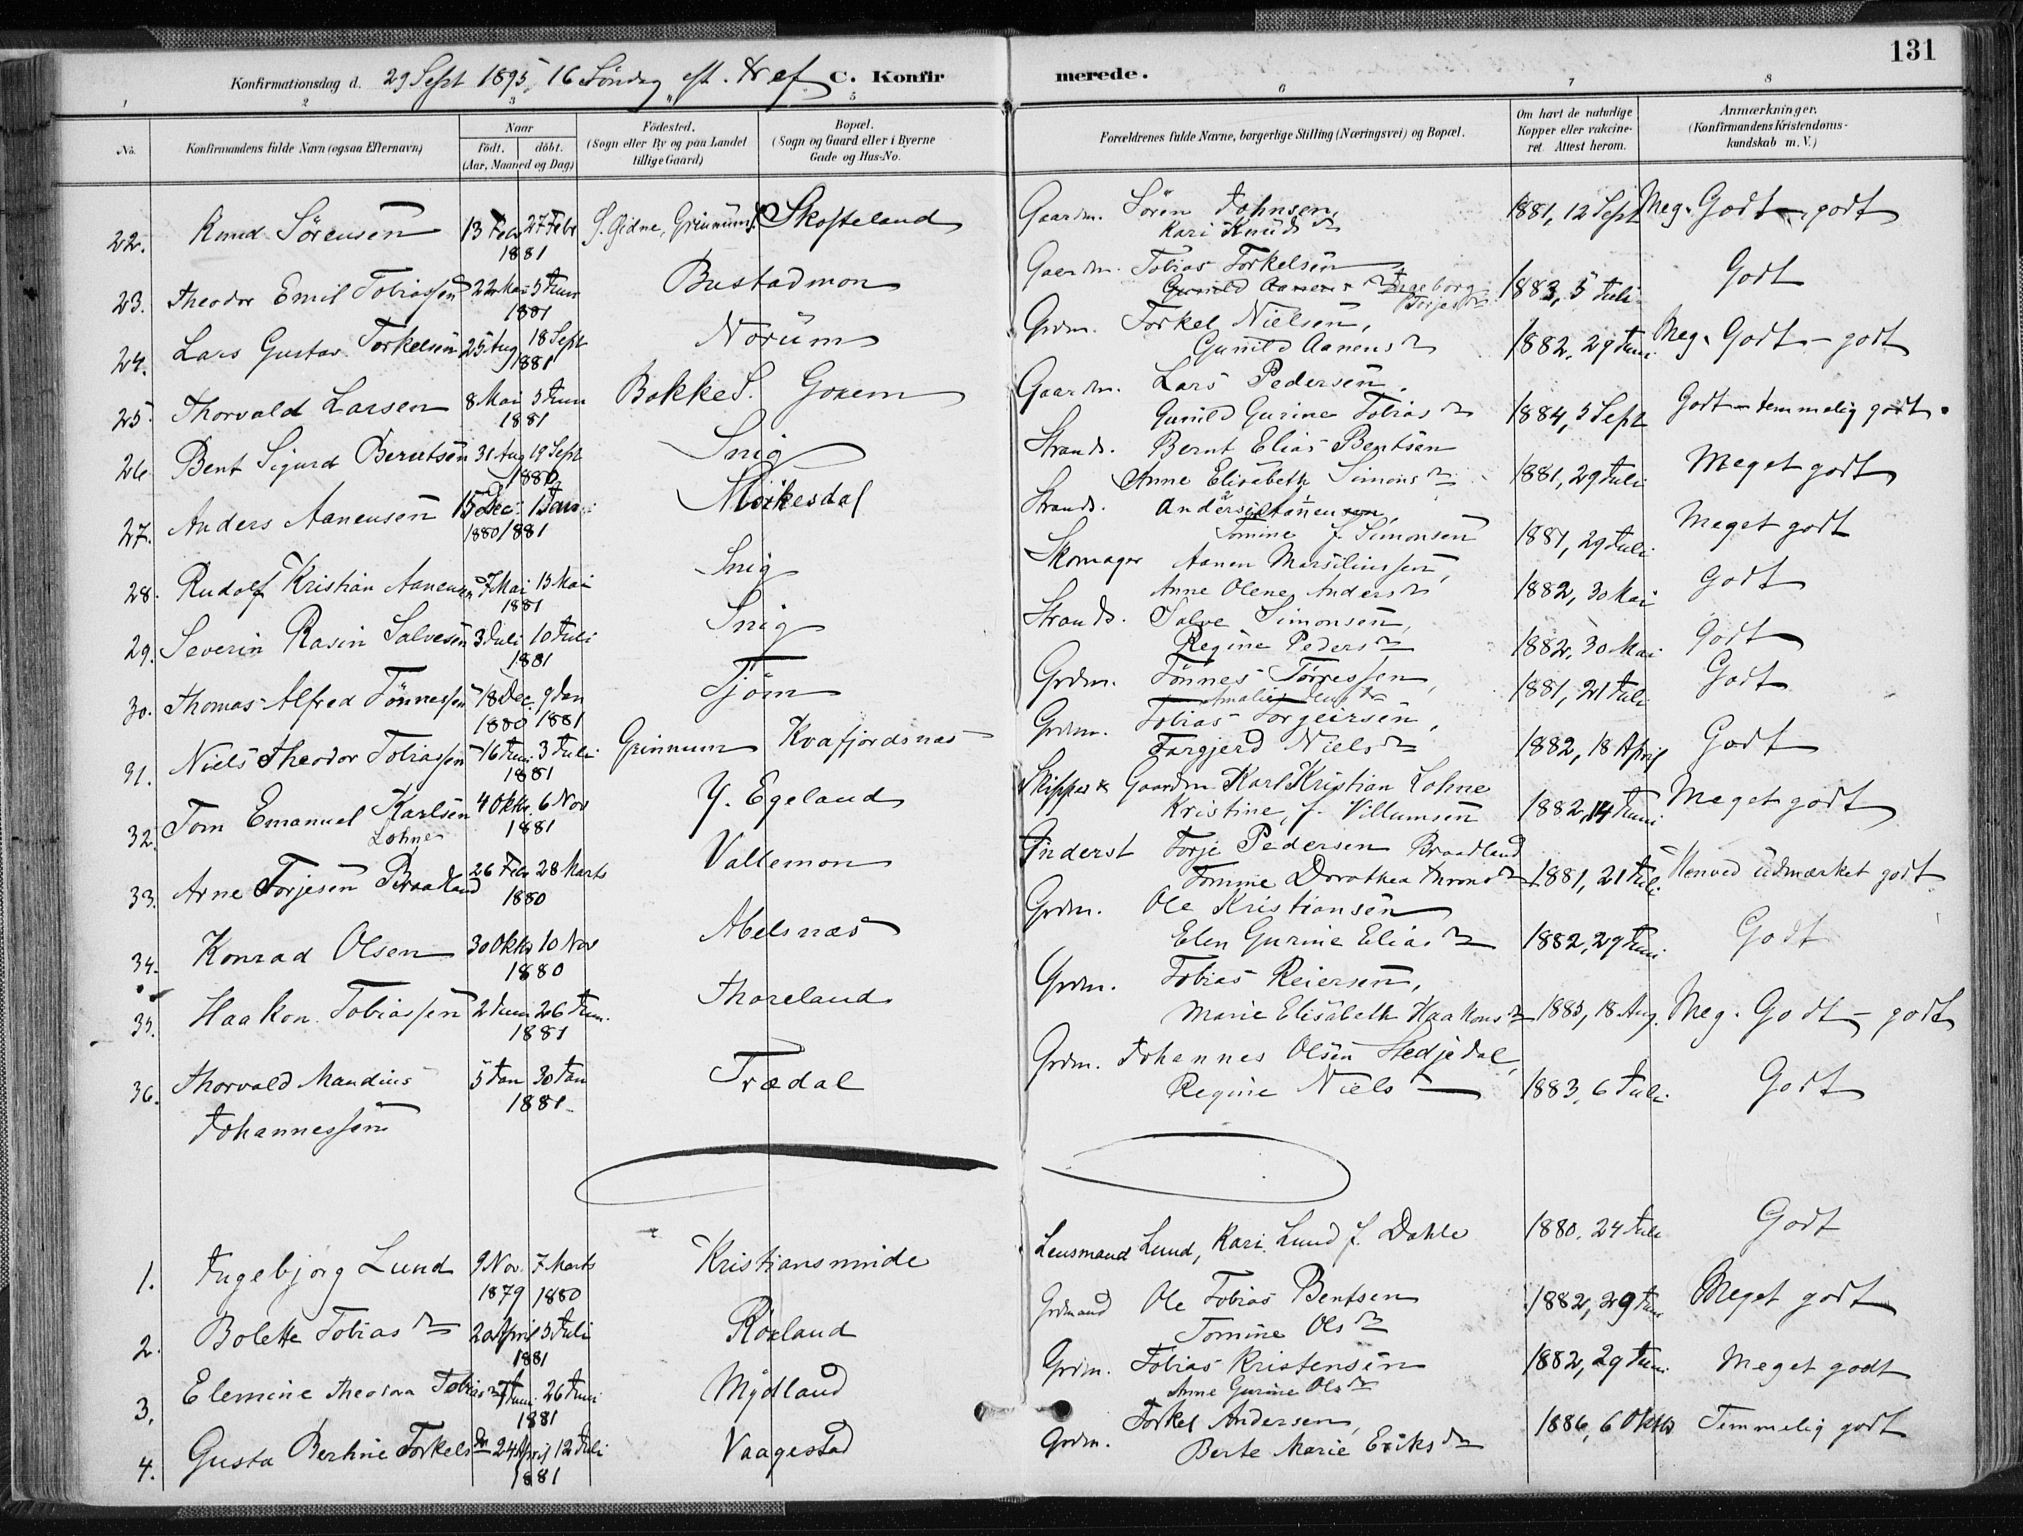 131
Konfirmationsdag d. 29 Sept 1895, 16 Söndag eft. Tref. C. Konfirmerede.
1 2 3 5 6 7 8
No.
Konfirmandens fulde Navn (ogsaa Efternavn)
Naar
födt. döbt.
(Aar, Maaned og Dag)
Födested.
(Sogn eller By og paa Landet
tillige Gaard)
Bopæl.
(Sogn og Gaard eller i Byerne
Gade og Hus-No.
Forældrenes fulde Navne, borgerlige Stilling (Næringsvei) og Bopæl.
Om havt de naturlige
Kopper eller vakcine-
ret. Attest herom.
Anmærkninger.
(Konfirmandens Kristendoms-
kundskab m. V.)
22. Knud Sörensen 13 Febr 27 Febr 1881 Skofteland Gaardm. Sören Johnsen, Kari Knudsdr 1881, 12 Sept Meg. Godt - godt
23. Theodor Emil Tobiassen 22 Mai 5 Juni 1881 Bustadmon Gaardm. Tobias Torkelsen, Ingeborg Torjesdr 1883, 5 Juli Godt
24. Lars Gustav Torkelsen 25 Aug 18 Sept 1881 Norum Grdm. Torkel Nielsen, Gunild Aanensdr 1882, 29 Juni Meg. Godt - godt
25. Thorvald Larsen 8 Mai 5 Juni 1881 Bakke S. Goxem Gaardm. Lars Pedersen, Gunild Gurine Tobiasdr 1884, 5 Sept Godt - temmelig godt.
26. Bent Sigurd Berntsen 31 Aug 19 Sept 1880 Snig Strands. Bernt Elias Bentsen Anne Elisabeth Simonsdr 1881, 29 Juli Meget godt
27. Anders Aanensen 15 Dec. 1 Jan. 1880 1881 Mörkesdal Strands. Tomine f. Simonsen 1881, 29 Juli Meget godt
28. Rudolf Kristian Aanensen 7 Mai 15 Mai 1881 Snig Skomager Aanen Marsiliussen, Anne Olene Andersdr 1882, 30 Mai Godt
29. Severin Rasin Salvesen 3 Juli 10 Juli 1881 Snig Strands. Salve Simonsen, Regine Pedersdr 1882, 30 Mai Godt
30. Thomas Alfred Tönnessen 18 Dec. 9 Jan 1880 1881 Tjöm Grdm. Tönnes Törressen, Amalie 1881, 21 Juli Godt
31. Niels Theodor Tobiassen 16 Juni 3 Juli 1881 Grinnum Kvafjordsnæs Grdm. Tobias Torgeirsen, Targjerd Nielsdr 1882, 18 April Godt
32. Tom Emanuel Karlsen Lohne 4 Oktb. 6 Nov 1881 Y. Egeland Skipper & Gaardm Karl Kristian Lohne Kristine, f. Villumsen 1882, 14 Juni Meget godt
33. Arne Torjesen Braadland 26 Febr 28 Marts 1880 Vallemon Inderst Torje Pedersen Braadland Tomine Dorothea Trondsdr 1881, 21 Juli Henved udmærket godt
34. Konrad Olsen 30 Oktb 10 Nov 1880 Abelsnæs Grdm. Ole Kristiansen Elen Gurine Eliasdr 1882, 29 Juni Godt
35. Haakon Tobiassen 2 Juni 26 Juni 1881 Thoreland Grdm. Tobias Reiersen, Marie Elisabeth Haakonsdr 1885, 18 Aug. Meg. Godt - godt
36. Thorvald Mandius Johannessen 5 Jan 30 Jan 1881 Trædal Grdm. Johannes Olsen Stedjedal, Regine Nielsdr 1883, 6 Juli Godt
1. Ingebjörg Lund 9 Nov. 7 Marts 1879 1880 Kristiansminde Lensmand Lund, Kari Lund f. Dahle 1880, 24 Juli Godt
2. Bolette Tobiasdr 20 April 3 Juli 1881 Röxland Grdmand Ole Tobias Bentsen Tomine Olsdr 1882, 29 Juni Meget godt
3. Elemine Theodora Tobiasdr 7 Juni 26 Juni 1881 Mydland Grdm. Tobias Kristensen Anne Gurine Olsdr 1882, 29 Juni Meget godt
4. Gusta Bertine Torkelsdr 24 April 12 Juli 1881 Vaagestad Grdm. Torkel Andersen, Berte Marie Eriksdr 1886, 6 Oktb Temmelig godt